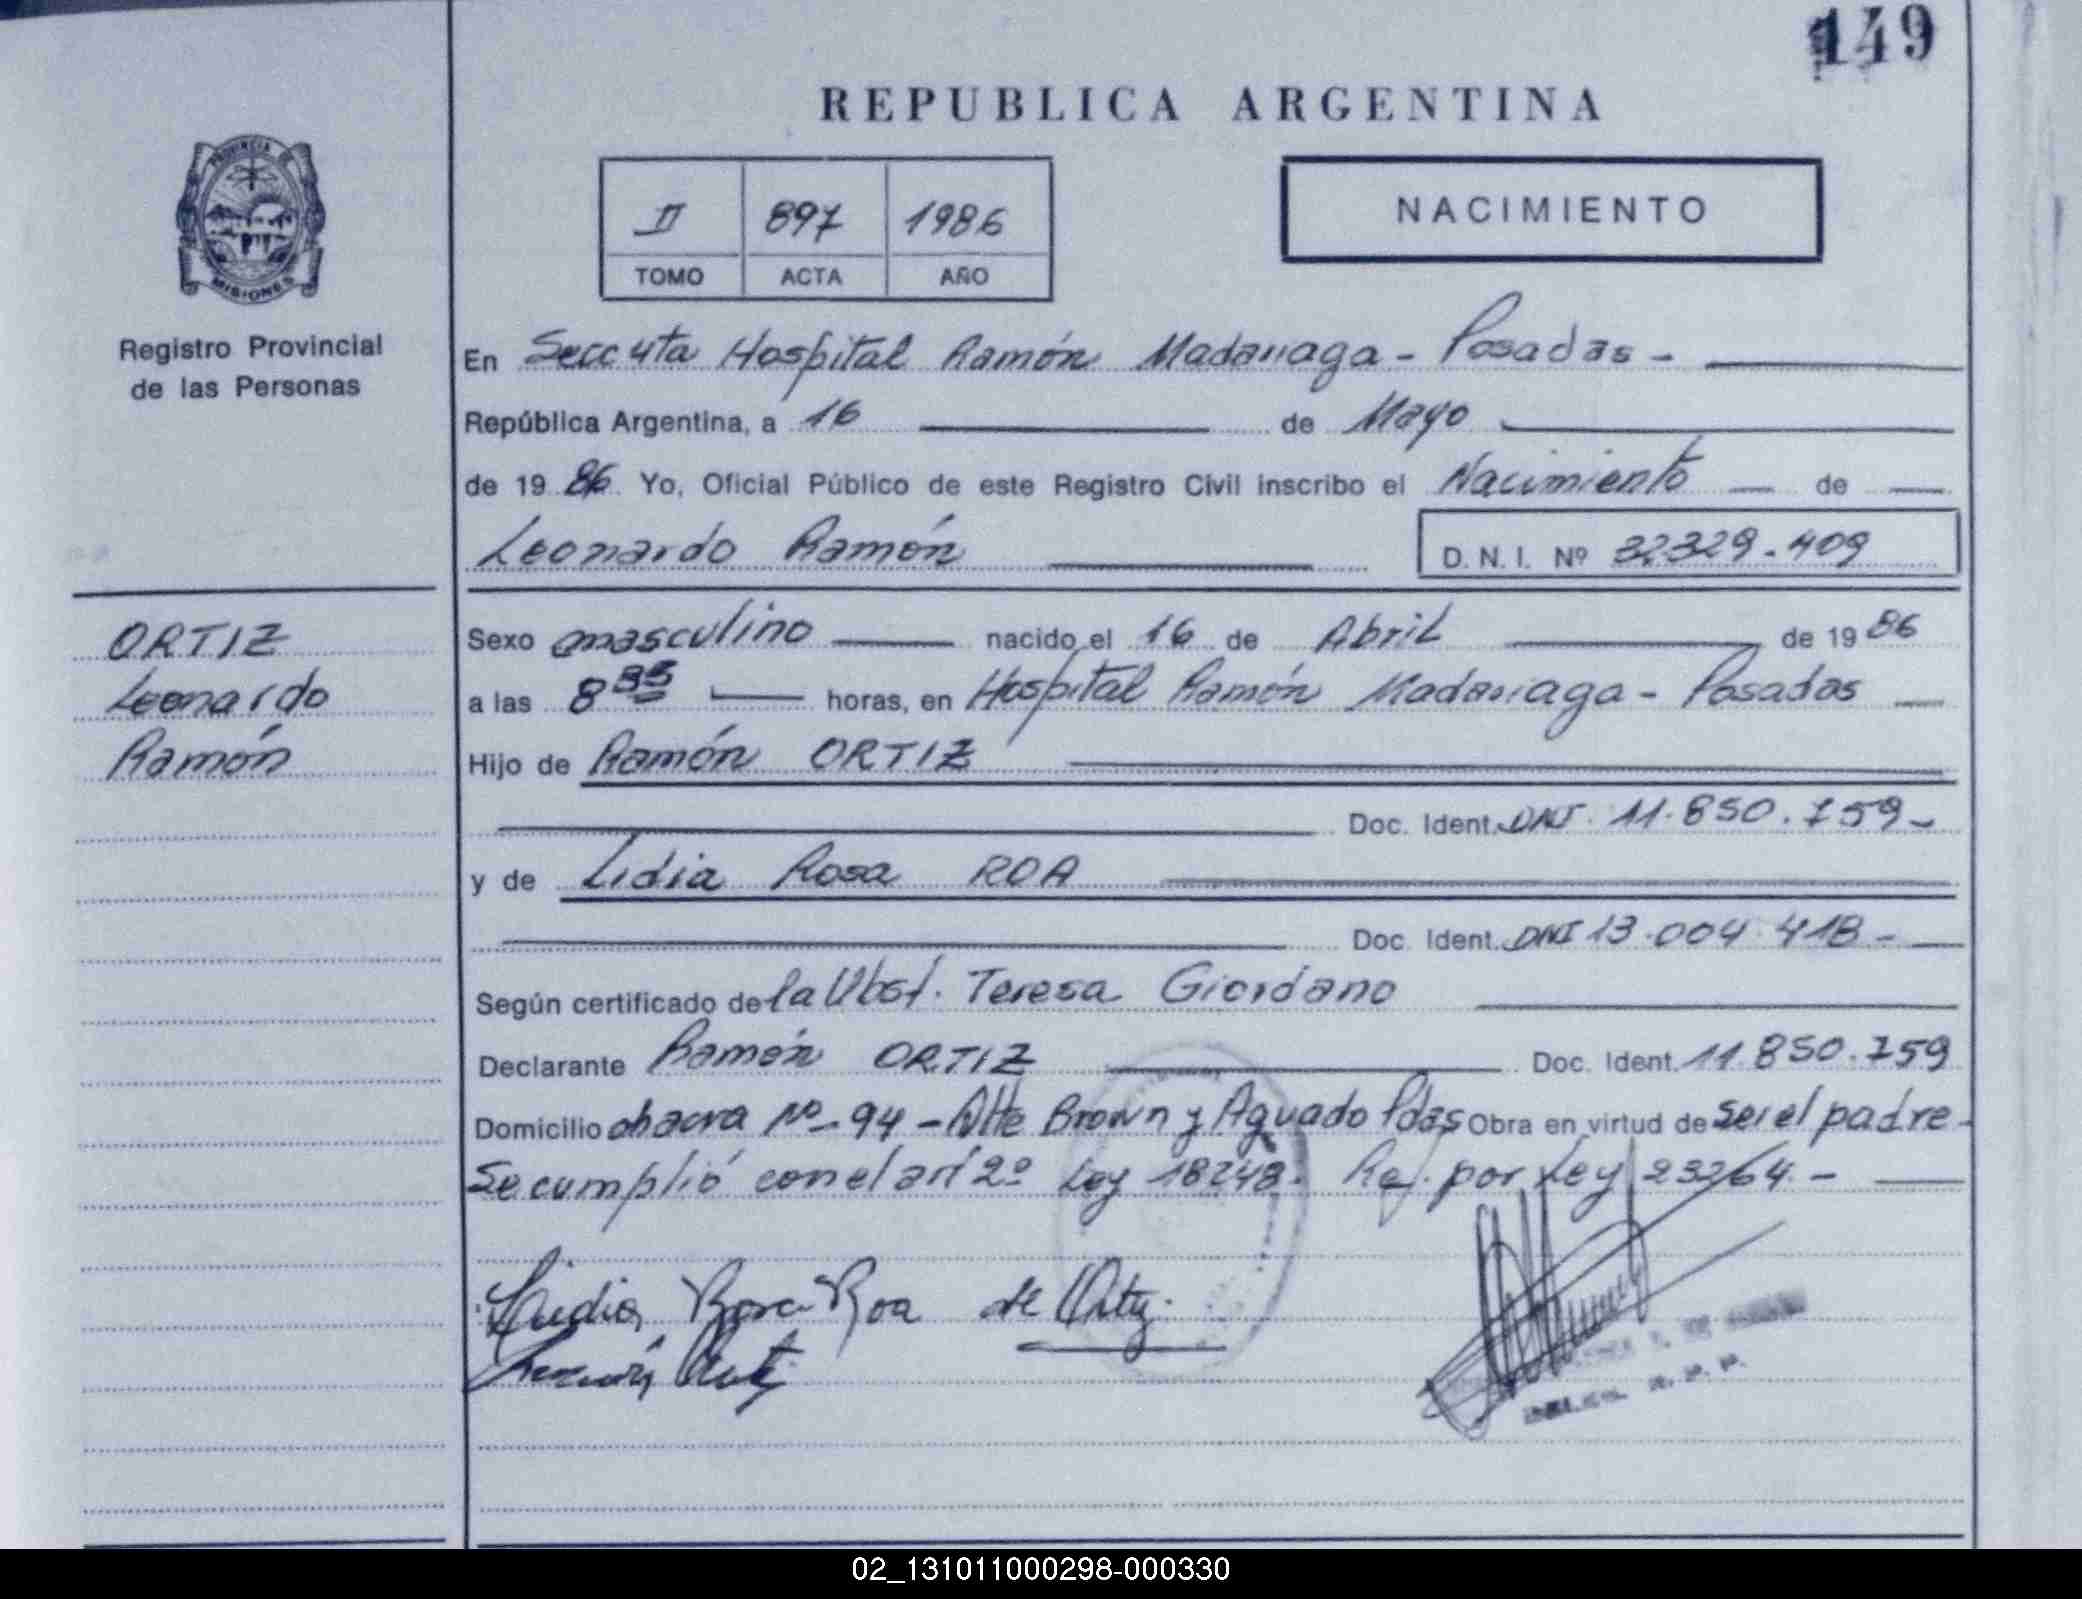 149
REPUBLICA ARGENTINA
PROVINCIA DE
MISIONES
II 897 1986
TOMO ACTA AÑO
NACIMIENTO
Registro Provincial
de las Personas
En Secc 4ta Hospital Ramón Madariaga - Posadas -
República Argentina, a 16 de Mayo
de 19 86 Yo, Oficial Público de este Registro Civil inscribo el Nacimiento de
Leonardo Ramón D.N.I. Nº 32329.409
ORTIZ
Leonardo
Ramón
Sexo masculino nacido el 16 de Abril de 19 86
a las 8 35 horas, en Hospital Ramón Madariaga - Posadas
Hijo de Ramón ORTIZ
Doc. Ident. DNI. 11.850.759-
y de Lidia Rosa ROA
Doc. Ident. DNI 13.004.418-
Según certificado de la Obst. Teresa Giordano
Declarante Ramón ORTIZ Doc. Ident. 11.850.759
Domicilio chacra Nº 94 - Alte Brown y Aguado Pdas Obra en virtud de ser el padre-
Se cumplió con el art 2º Ley 18248. Ref. por Ley 23264.-
Lidia Rosa Roa de Ortiz.
Ramón Ortiz
R. P. P.
02_131011000298-000330